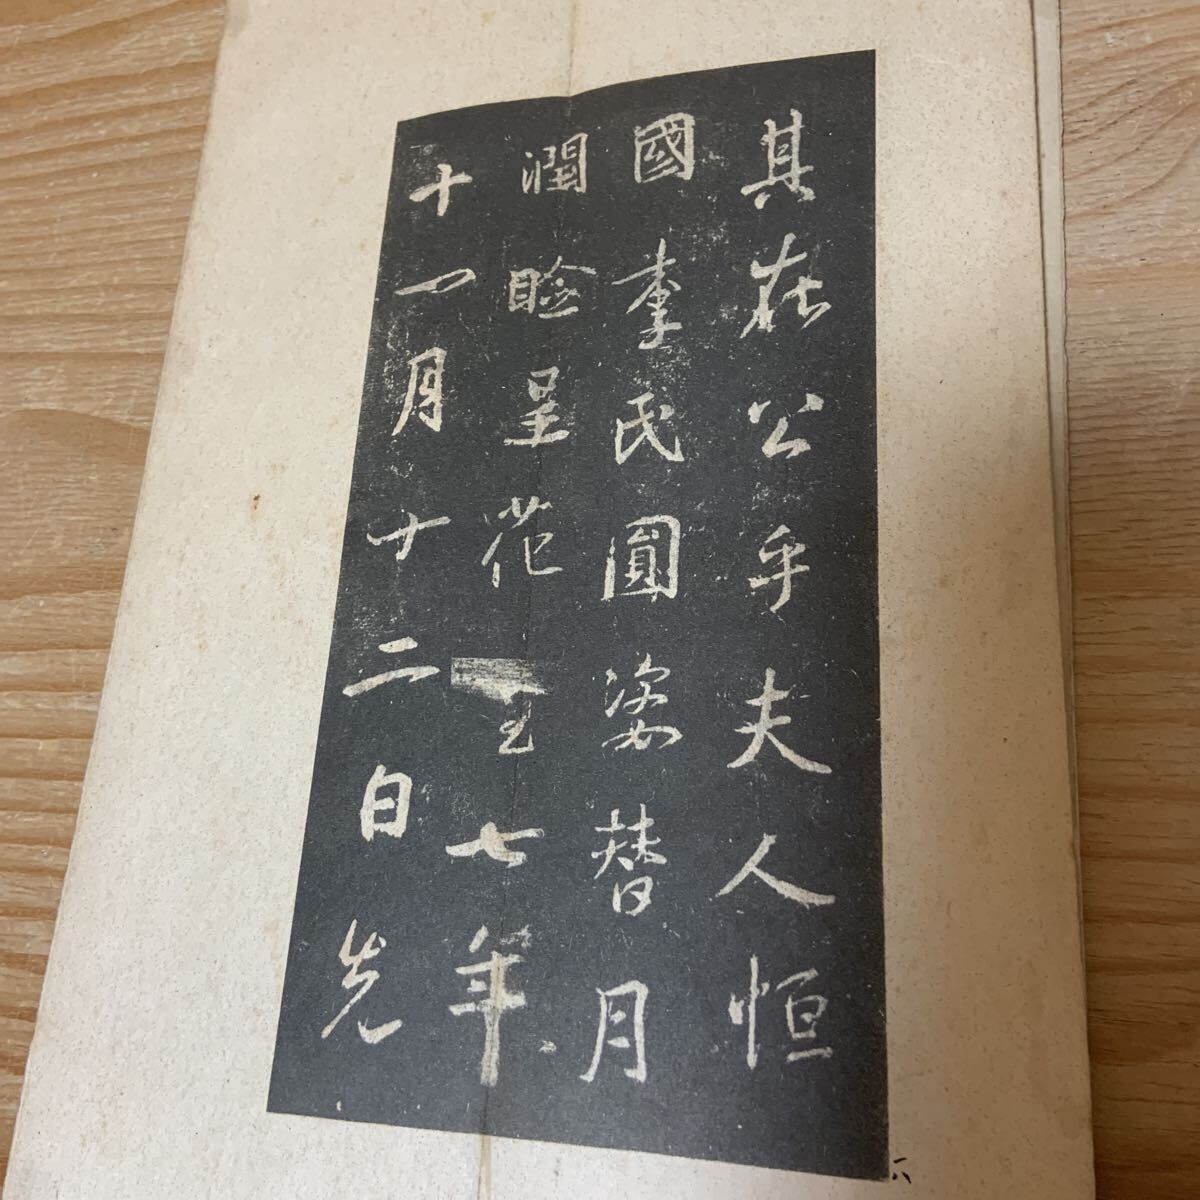 其在公乎夫人恒
國李氏圓姿替月
潤臉呈花
七年
十一月十二日先
六